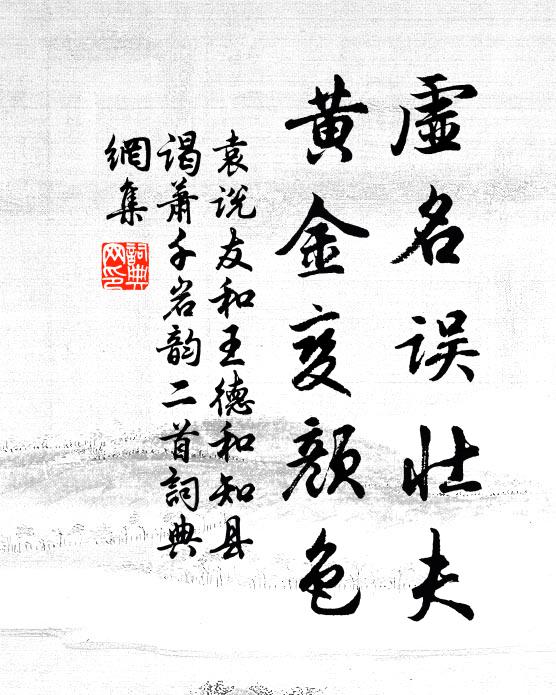 虚名误壮夫
黄金变颜色
袁说友和王德和知县
谒萧千岩韵二首詞典
網集
詞典
网印